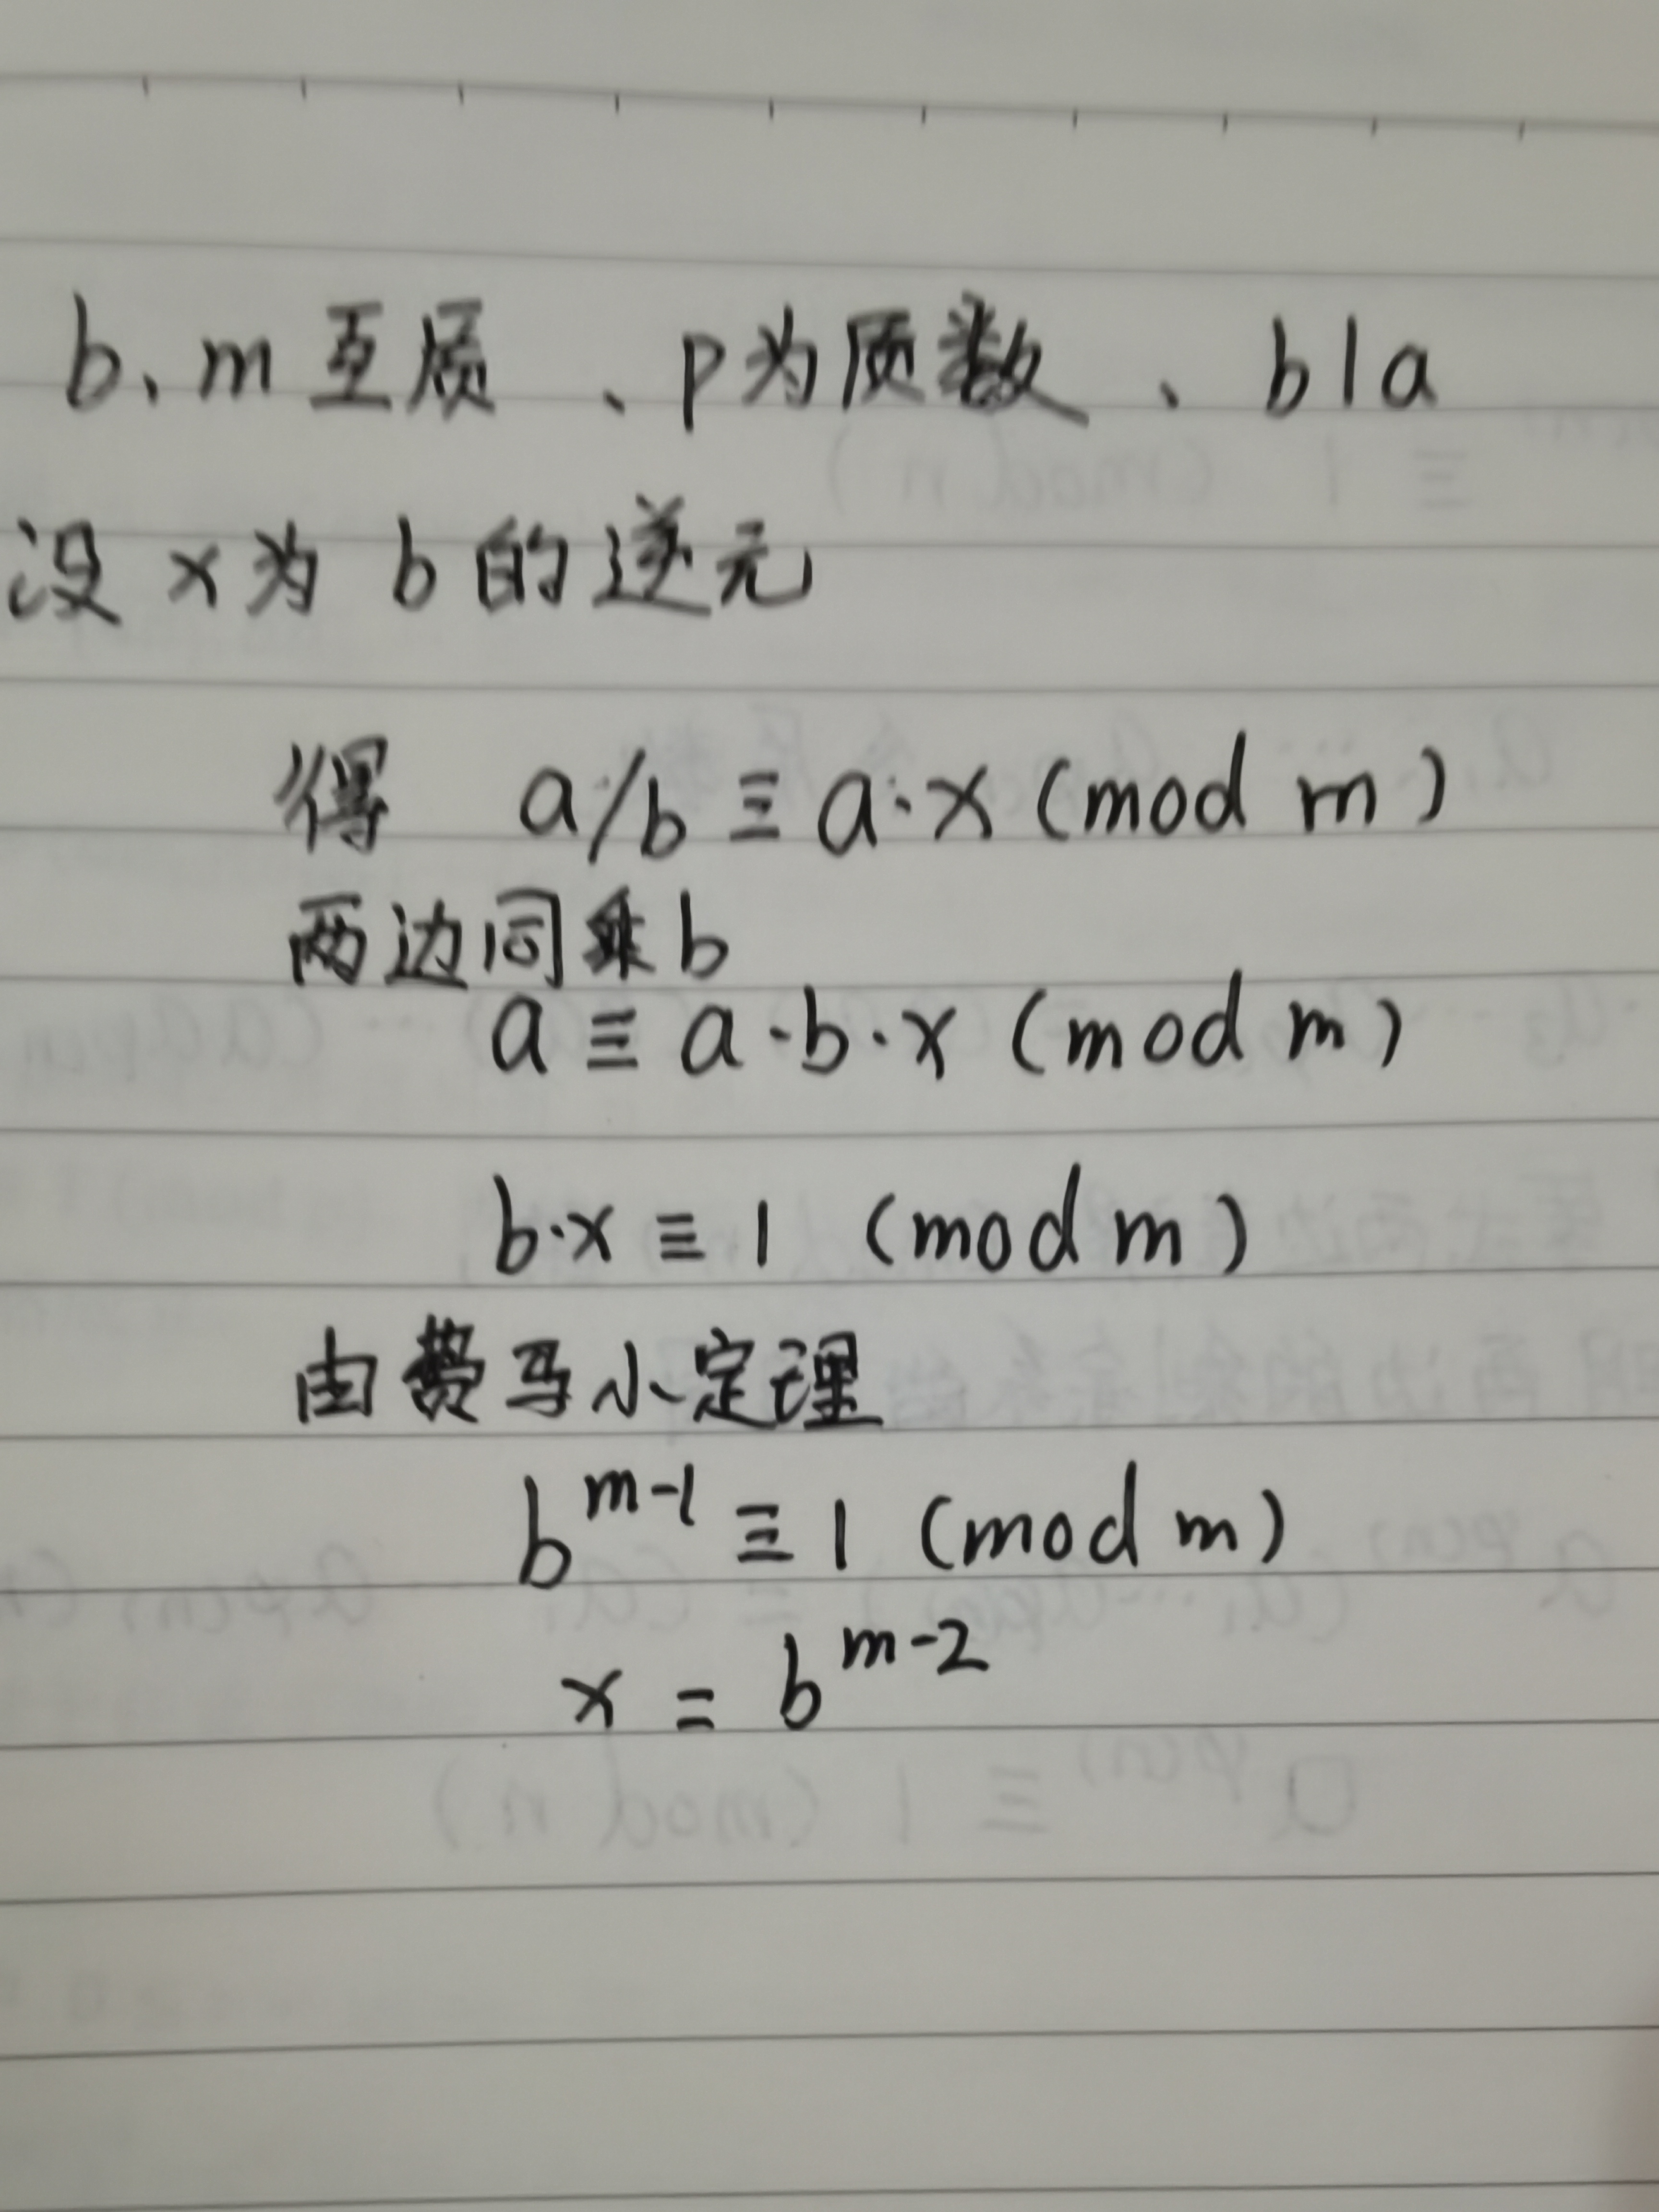 b、m 互质 、p为质数 、b|a
设 x为 b 的逆元
得 a/b ≡ a·x (mod m)
两边同乘b
a ≡ a·b·x (mod m)
b·x ≡ 1 (mod m)
由费马小定理
b^{m-1} ≡ 1 (mod m)
x = b^{m-2}